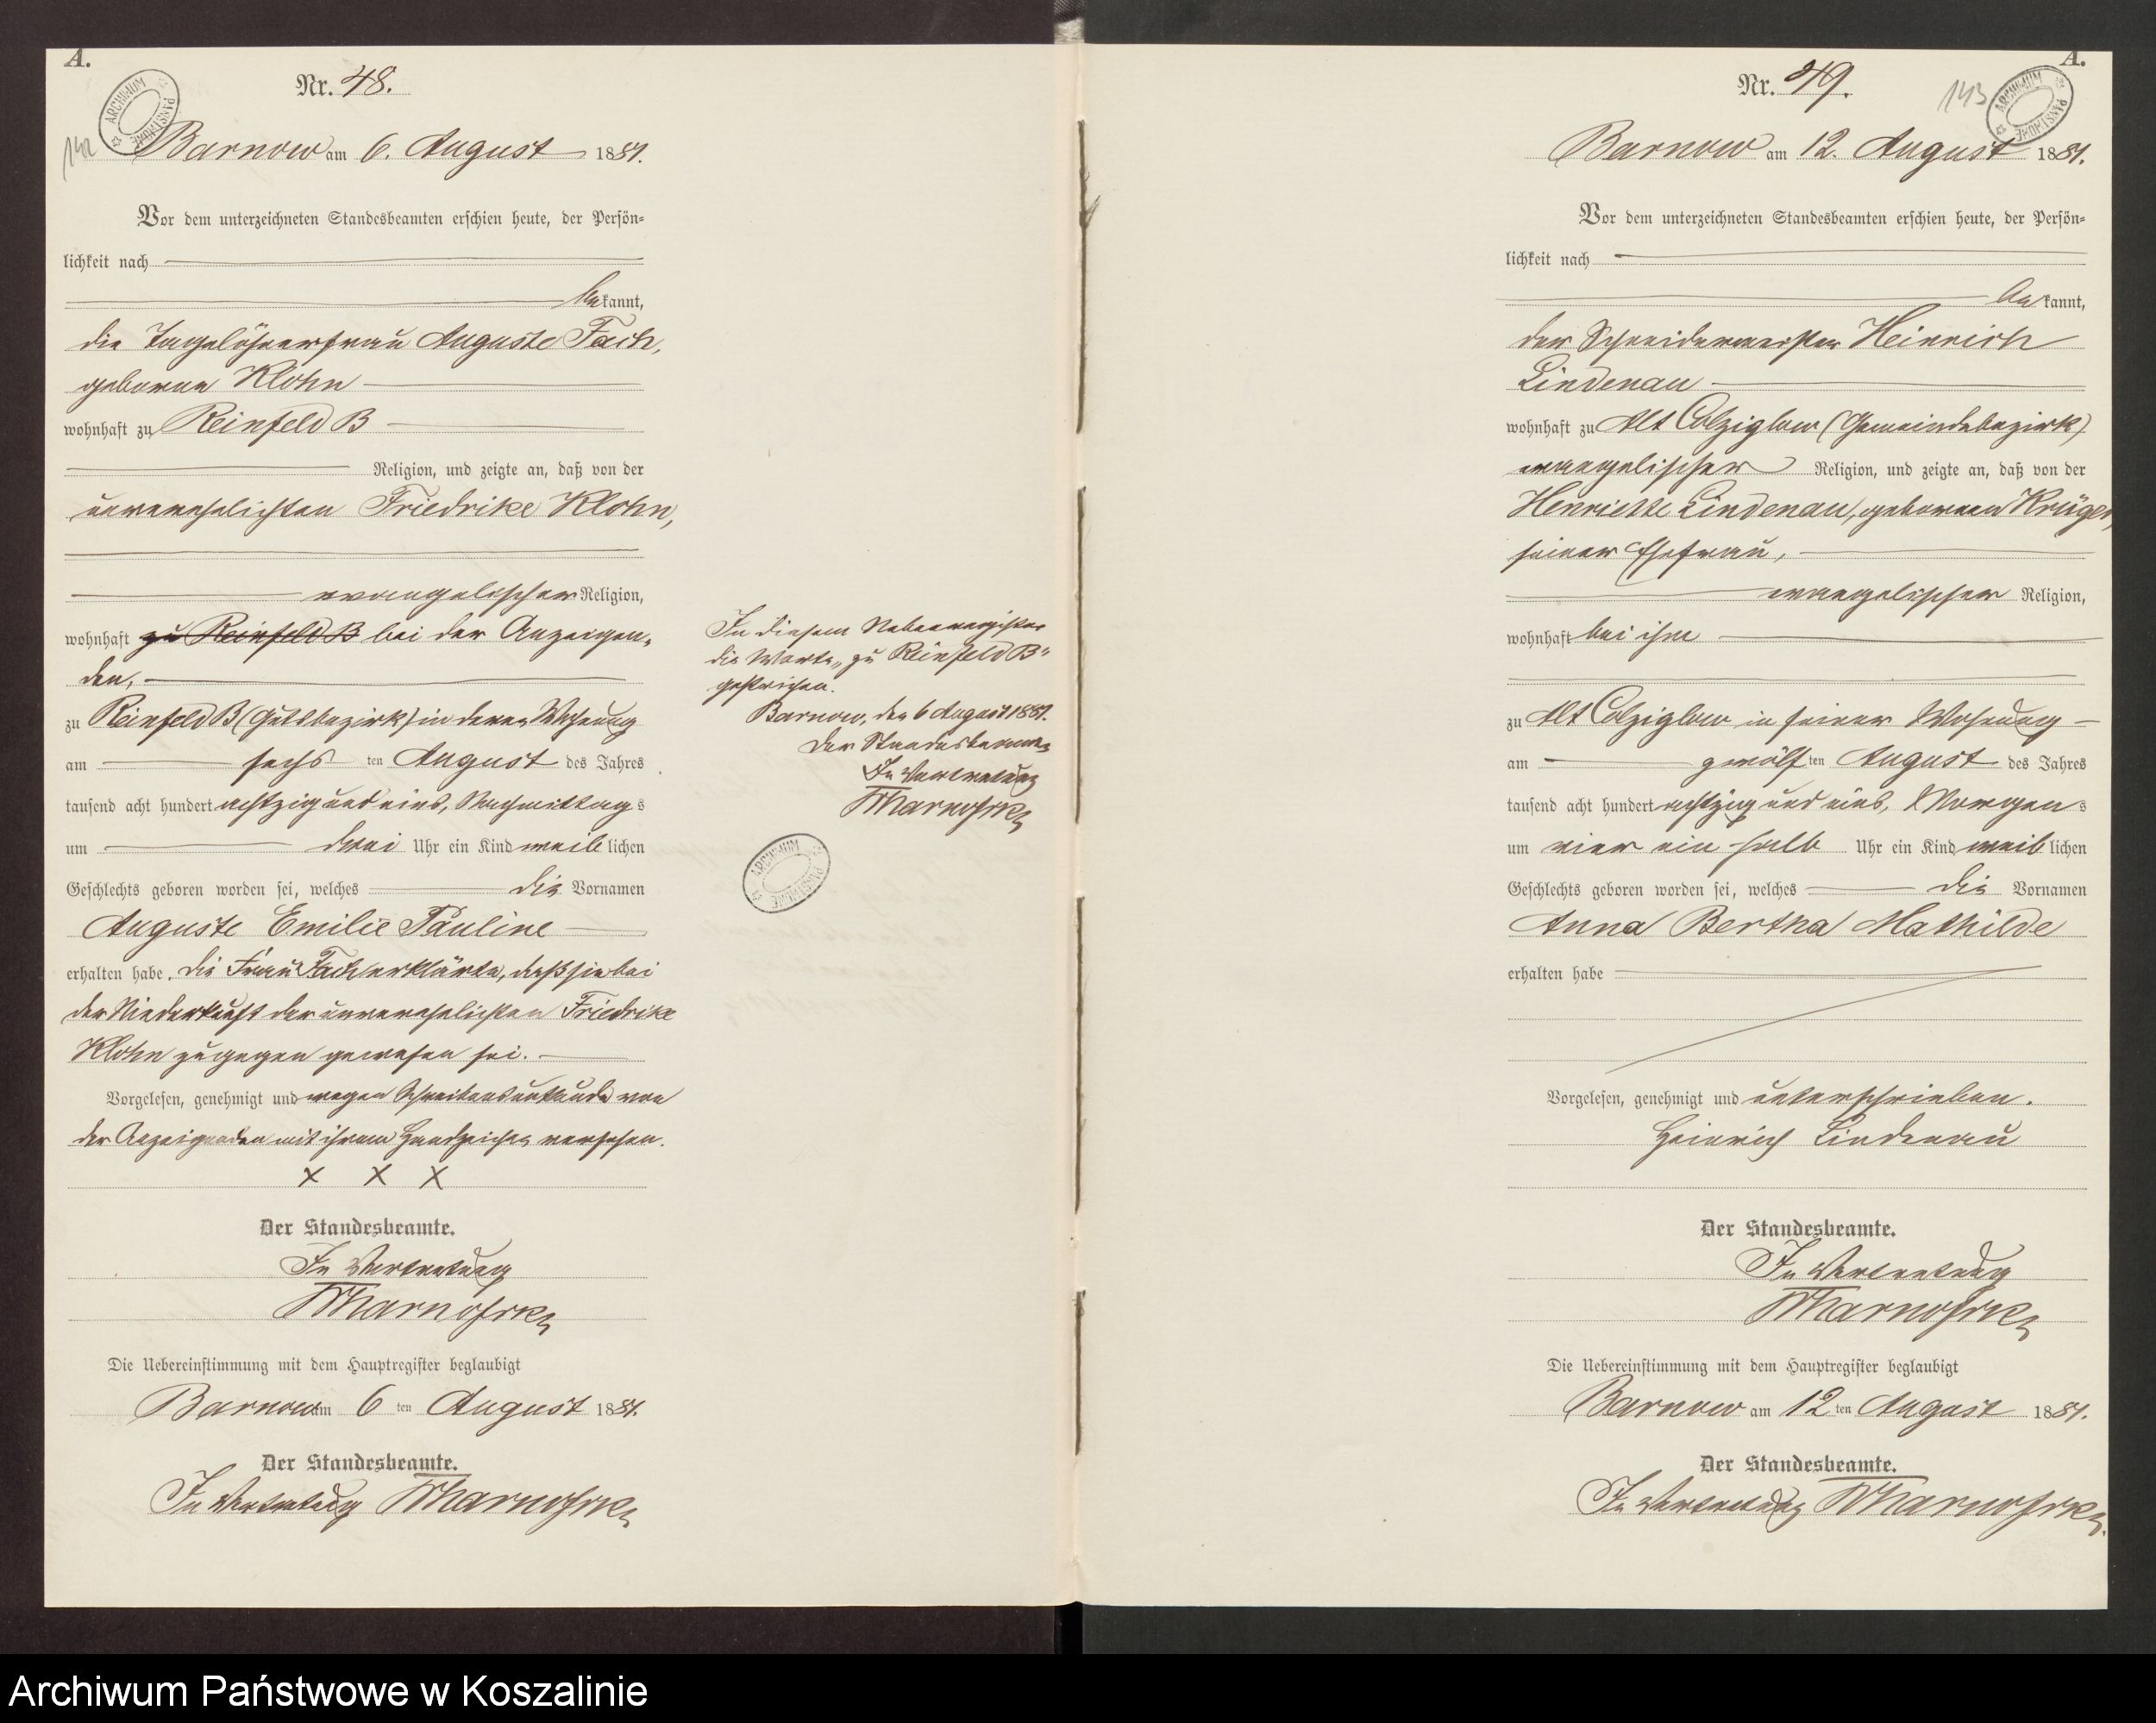 A.
ARCHIWUM PAŃSTWOWE
142
Nr. 48.
Barnow am 6. August 1881.
Vor dem unterzeichneten Standesbeamten erschien heute, der Persön-
lichkeit nach
bekannt,
die Tagelöhnerfrau Auguste Fach,
geborene Klohn
wohnhaft zu Reinfeld B
Religion, und zeigte an, daß von der
unverehelichten Friedrike Klohn,
evangelischer Religion,
wohnhaft zu Reinfeld B bei der Anzeigen-
den,
zu Reinfeld B (Gutsbezirk) in deren Wohnung
am sechsten August des Jahres
tausend acht hundert achtzig und eins, Nachmittags
um drei Uhr ein Kind weiblichen
Geschlechts geboren worden sei, welches die Vornamen
Auguste Emilie Pauline
erhalten habe. Die Frau Fach erklärte, daß sie bei
der Niederkunft der unverehelichten Friedrike
Klohn zugegen gewesen sei.
Vorgelesen, genehmigt und wegen Schreibensunkunde von
der Anzeigenden mit ihrem Handzeichen versehen.
X X X
Der Standesbeamte.
In Vertretung
Die Uebereinstimmung mit dem Hauptregister beglaubigt
Barnow am 6ten August 1881.
Der Standesbeamte.
In Vertretung
In diesem Nebenregister
die Worte „zu Reinfeld B"
gestrichen.
Barnow, den 6 August 1881.
Der Standesbeamte
In Vertretung
ARCHIWUM PAŃSTWOWE
A.
ARCHIWUM PAŃSTWOWE
143
Nr. 49.
Barnow am 12. August 1881.
Vor dem unterzeichneten Standesbeamten erschien heute, der Persön-
lichkeit nach
bekannt,
der Schneidermeister Heinrich
Lindenau
wohnhaft zu Alt Colziglow (Gemeindebezirk)
evangelischer Religion, und zeigte an, daß von der
Henriette Lindenau, geborenen Krüger,
seiner Ehefrau,
evangelischer Religion,
wohnhaft bei ihm
zu Alt Colziglow in seiner Wohnung
am zwölften August des Jahres
tausend acht hundert achtzig und eins, Morgens
um vier ein halb Uhr ein Kind weiblichen
Geschlechts geboren worden sei, welches die Vornamen
Anna Bertha Mathilde
erhalten habe
Vorgelesen, genehmigt und unterschrieben.
Heinrich Lindenau
Der Standesbeamte.
In Vertretung
Die Uebereinstimmung mit dem Hauptregister beglaubigt
Barnow am 12ten August 1881.
Der Standesbeamte.
In Vertretung
Archiwum Państwowe w Koszalinie